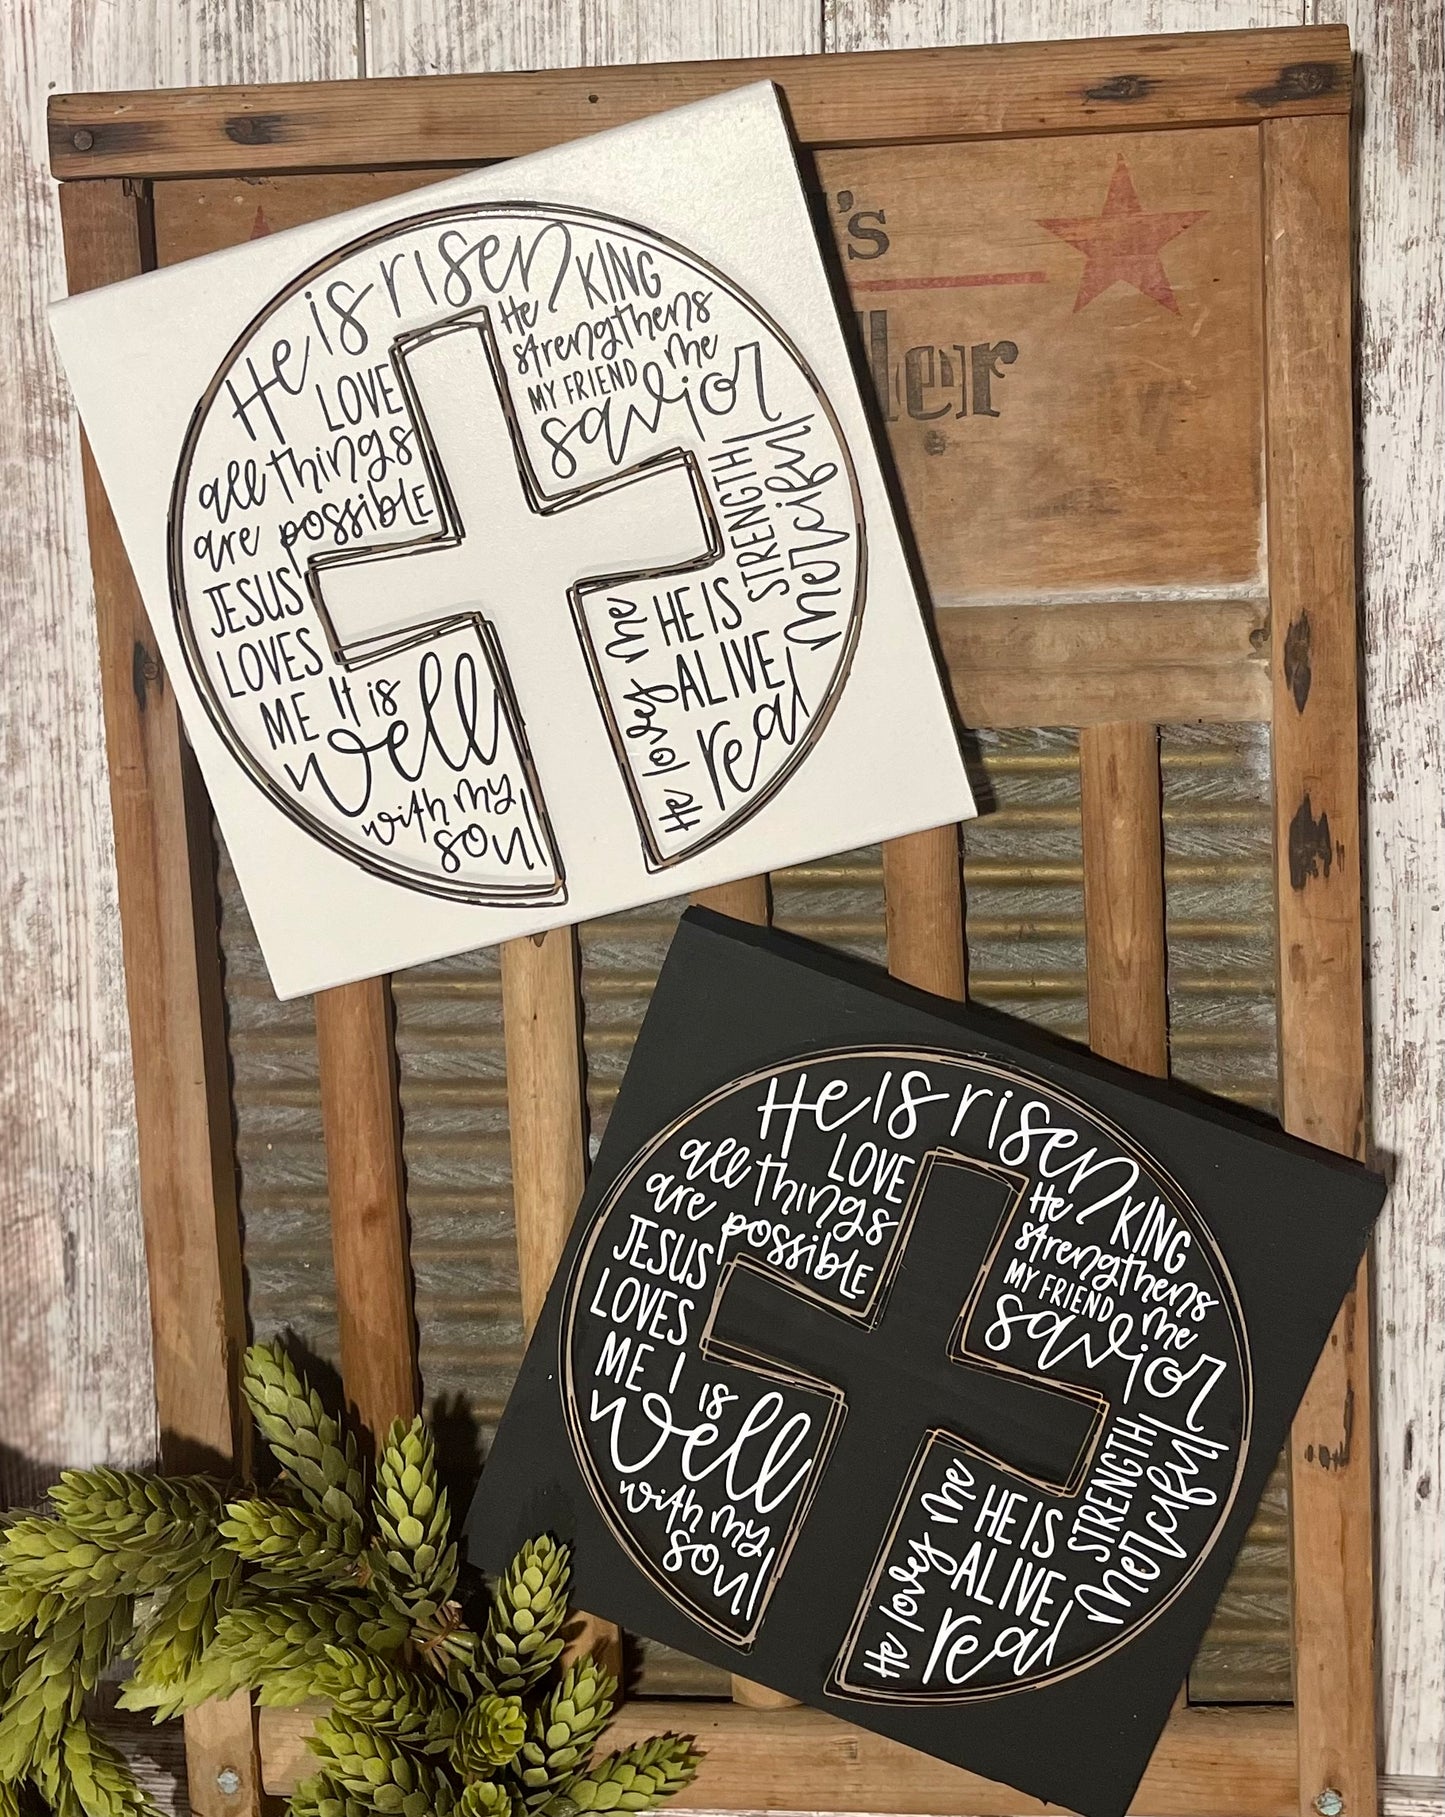 's
ler
He is risen
KING
He
strengthens
me
MY FRIEND
savior
LOVE
all things
are possible
JESUS
LOVES
ME
It is
well
with my
soul
STRENGTH
merciful
He loves me
HE IS
ALIVE
real
He is risen
KING
He
strengthens
me
MY FRIEND
savior
LOVE
all things
are possible
JESUS
LOVES
ME
I is
well
with my
soul
STRENGTH
merciful
He loves me
HE IS
ALIVE
real